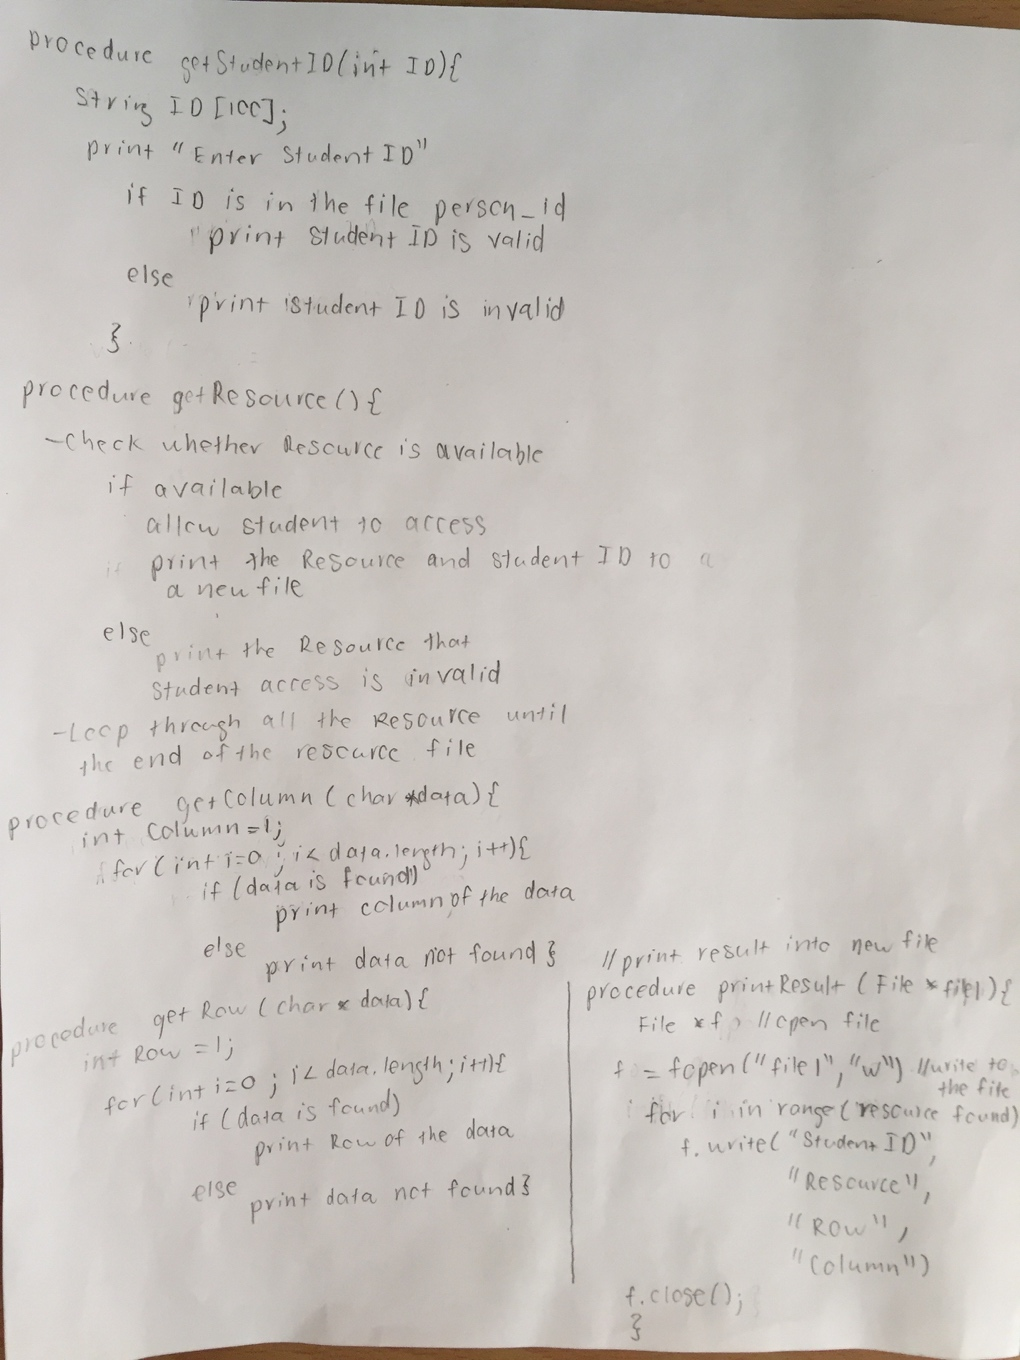 procedure getStudentID(int ID){
String ID [100];
print "Enter Student ID"
if ID is in the file person_id
"print Student ID is valid
else
print student ID is invalid
}
procedure getResource(){
-Check whether Resource is available
if available
allow student to access
print the Resource and student ID to a
a new file
else
print the Resource that
Student access is invalid
-Loop through all the Resource until
the end of the resource file
procedure getColumn (char *data){
int Column=1;
for(int i=0; i< data.length; i++){
if (data is found)
print column of the data
else
print data not found }
procedure get Row (char * data){
int Row =1;
for(int i=0; i< data.length; i++){
if (data is found)
print Row of the data
else
print data not found }
//print result into new file
procedure printResult (File *file1){
File *f //open file
f = fopen("file1","w") //write to
the file
for i in range(resource found)
f.write("Student ID",
"Resource",
"Row",
"Column")
f.close();
}